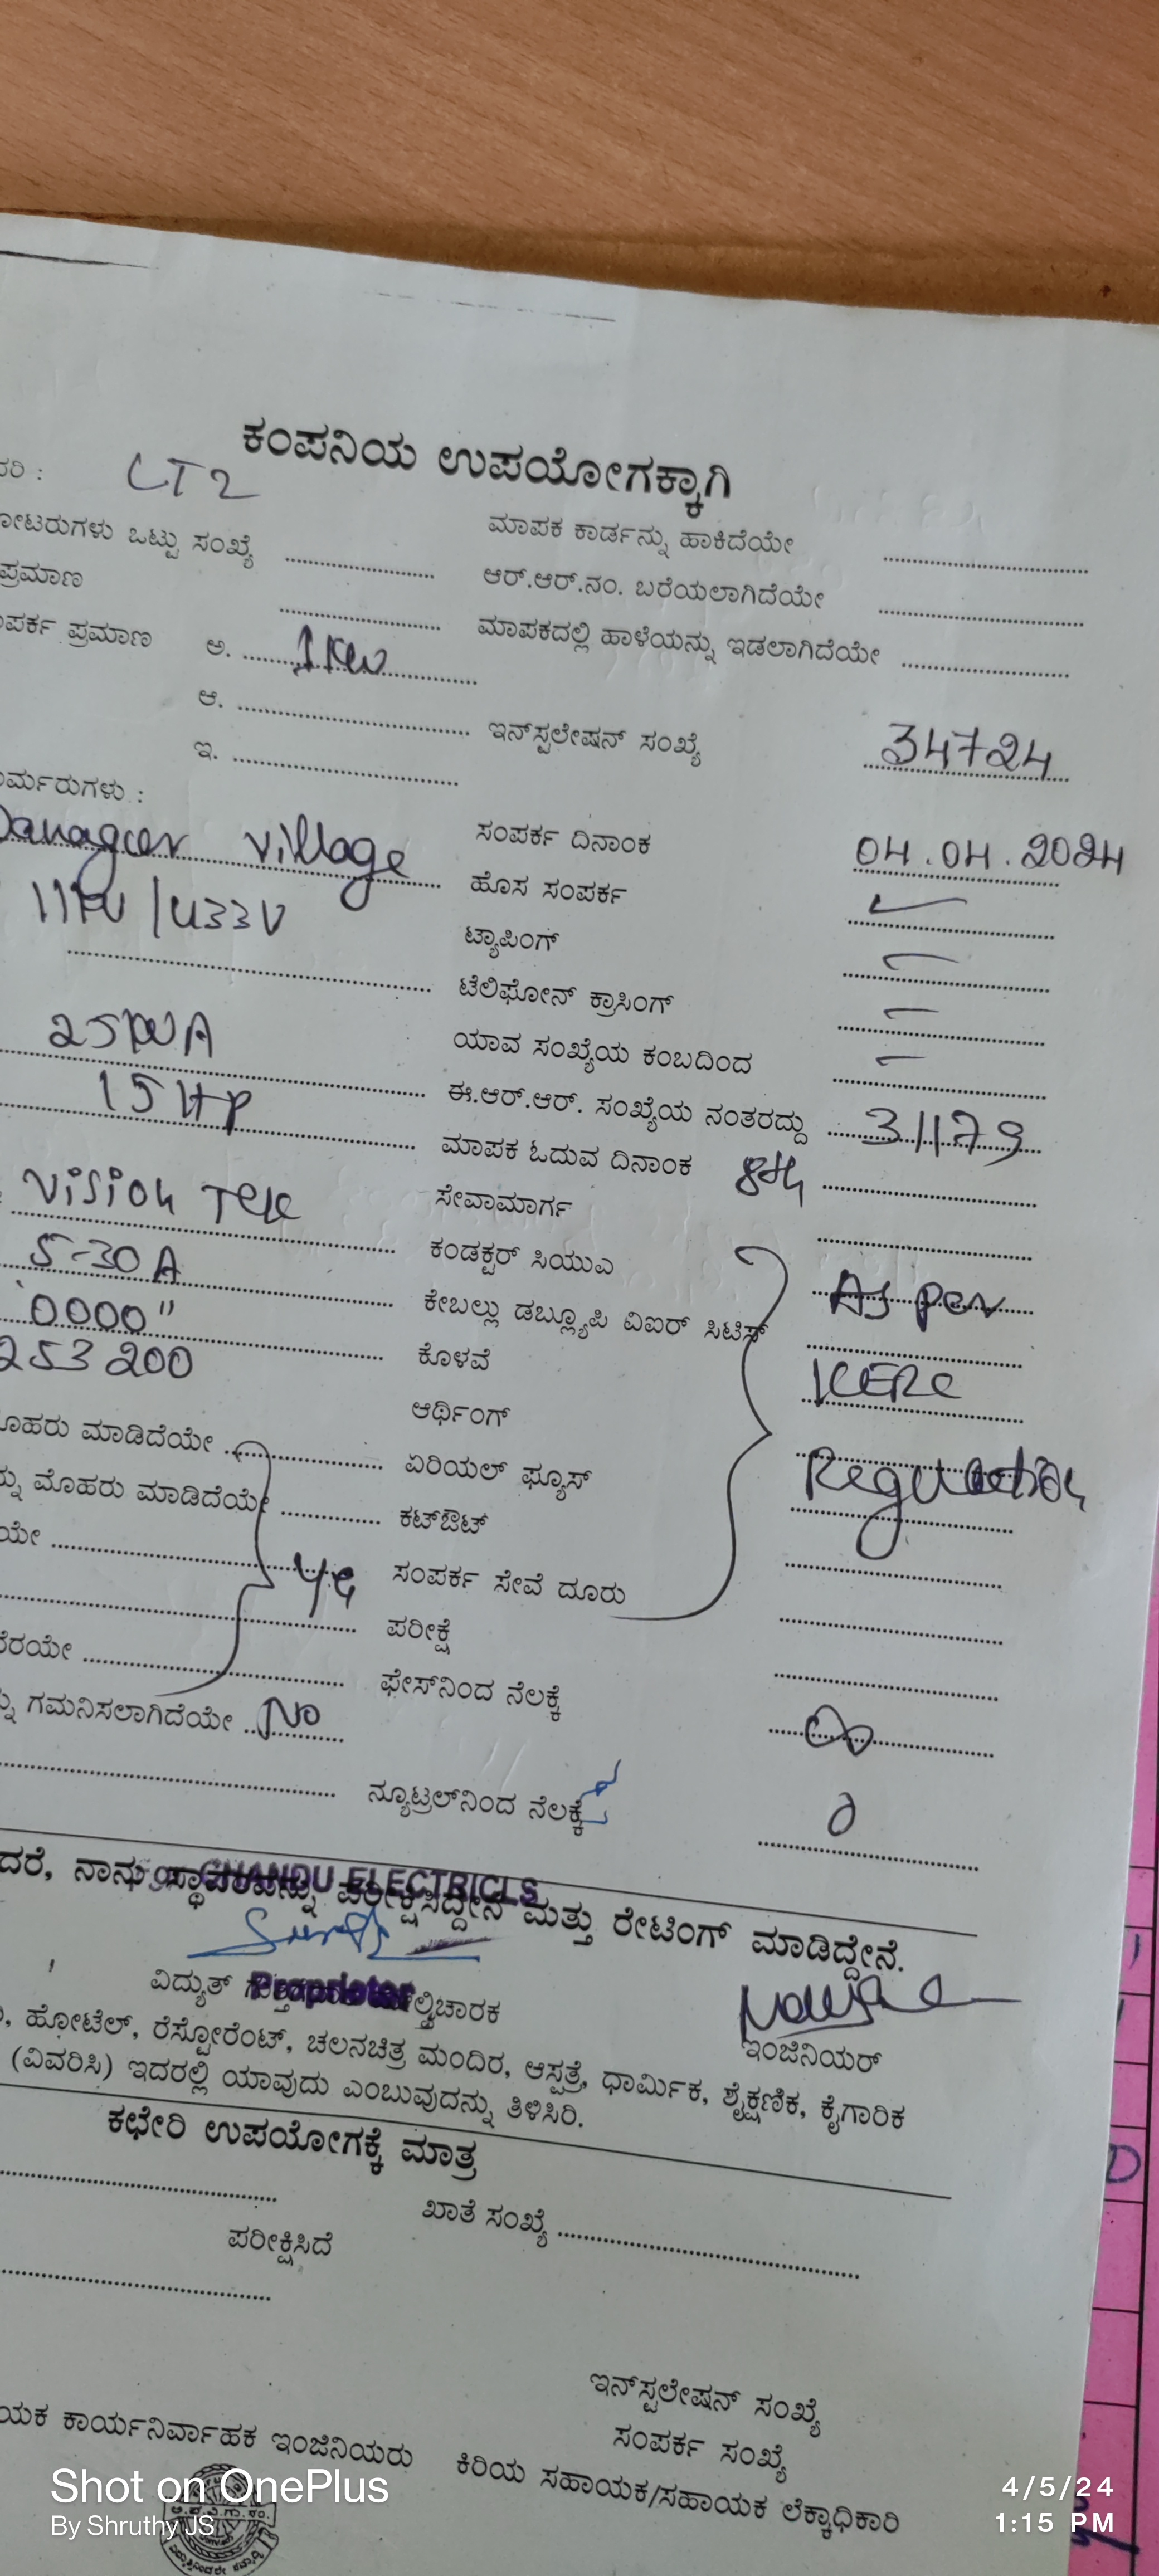 ಕಂಪನಿಯ ಉಪಯೋಗಕ್ಕಾಗಿ
LT2
ಒಟ್ಟು ಸಂಖ್ಯೆ ಮಾಪಕ ಕಾರ್ಡನ್ನು ಹಾಕಿದೆಯೇ
ಪ್ರಮಾಣ ಆರ್.ಆರ್.ನಂ. ಬರೆಯಲಾಗಿದೆಯೇ
ಪ್ರಮಾಣ ಅ. 1KW ಮಾಪಕದಲ್ಲಿ ಹಾಳೆಯನ್ನು ಇಡಲಾಗಿದೆಯೇ
ಆ. ಇನ್‌ಸ್ಟಲೇಷನ್ ಸಂಖ್ಯೆ 34724
ಇ.
village ಸಂಪರ್ಕ ದಿನಾಂಕ 04.04.2024
11KV/433V ಹೊಸ ಸಂಪರ್ಕ
ಟ್ಯಾಪಿಂಗ್ -
ಟೆಲಿಫೋನ್ ಕ್ರಾಸಿಂಗ್ -
25KVA ಯಾವ ಸಂಖ್ಯೆಯ ಕಂಬದಿಂದ -
15HP ಈ.ಆರ್.ಆರ್. ಸಂಖ್ಯೆಯ ನಂತರದ್ದು 31179
ಮಾಪಕ ಓದುವ ದಿನಾಂಕ 8th
Vision Tek ಸೇವಾಮಾರ್ಗ
5-30A ಕಂಡಕ್ಟರ್ ಸಿಯುಎ As per
0000" ಕೇಬಲ್ಲು ಡಬ್ಲ್ಯೂಪಿ ವಿಐರ್ ಸಿಟಿಸ್
253200 ಕೊಳವೆ KERC
ಆರ್ಥಿಂಗ್
ಮಾಡಿದೆಯೇ ಏರಿಯಲ್ ಫ್ಯೂಸ್ Regulation
ಮೊಹರು ಮಾಡಿದೆಯೇ ಕಟ್‌ಔಟ್
ಸಂಪರ್ಕ ಸೇವೆ ದೂರು
ಪರೀಕ್ಷೆ
ಫೇಸ್‌ನಿಂದ ನೆಲಕ್ಕೆ ∞
ಗಮನಿಸಲಾಗಿದೆಯೇ No
ನ್ಯೂಟ್ರಲ್‌ನಿಂದ ನೆಲಕ್ಕೆ 0
CHANDU ELECTRICLS
ನಾನು ಪರೀಕ್ಷಿಸಿದ್ದೇನೆ ಮತ್ತು ರೇಟಿಂಗ್ ಮಾಡಿದ್ದೇನೆ.
Proprietor
ವಿದ್ಯುತ್
ಇಂಜಿನಿಯರ್
ಹೋಟೆಲ್, ರೆಸ್ಟೋರೆಂಟ್, ಚಲನಚಿತ್ರ ಮಂದಿರ, ಆಸ್ಪತ್ರೆ, ಧಾರ್ಮಿಕ, ಶೈಕ್ಷಣಿಕ, ಕೈಗಾರಿಕ
(ವಿವರಿಸಿ) ಇದರಲ್ಲಿ ಯಾವುದು ಎಂಬುವುದನ್ನು ತಿಳಿಸಿರಿ.
ಕಛೇರಿ ಉಪಯೋಗಕ್ಕೆ ಮಾತ್ರ
ಖಾತೆ ಸಂಖ್ಯೆ
ಪರೀಕ್ಷಿಸಿದೆ
ಇನ್‌ಸ್ಟಲೇಷನ್ ಸಂಖ್ಯೆ
ಸಂಪರ್ಕ ಸಂಖ್ಯೆ
ಕಾರ್ಯನಿರ್ವಾಹಕ ಇಂಜಿನಿಯರು ಕಿರಿಯ ಸಹಾಯಕ/ಸಹಾಯಕ ಲೆಕ್ಕಾಧಿಕಾರಿ
Shot on OnePlus
By Shruthy JS
4/5/24
1:15 PM